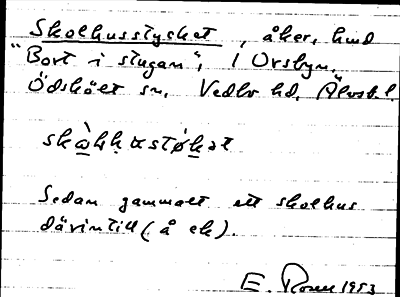 Skolhusstycket, åker, hmd
"Bort i stugan", i Orsbyn,
Ödskölt sn. Vedbo hd. Älvsb. l.
Sedan gammalt ett skolhus
därintill (å ek).
E. 1953